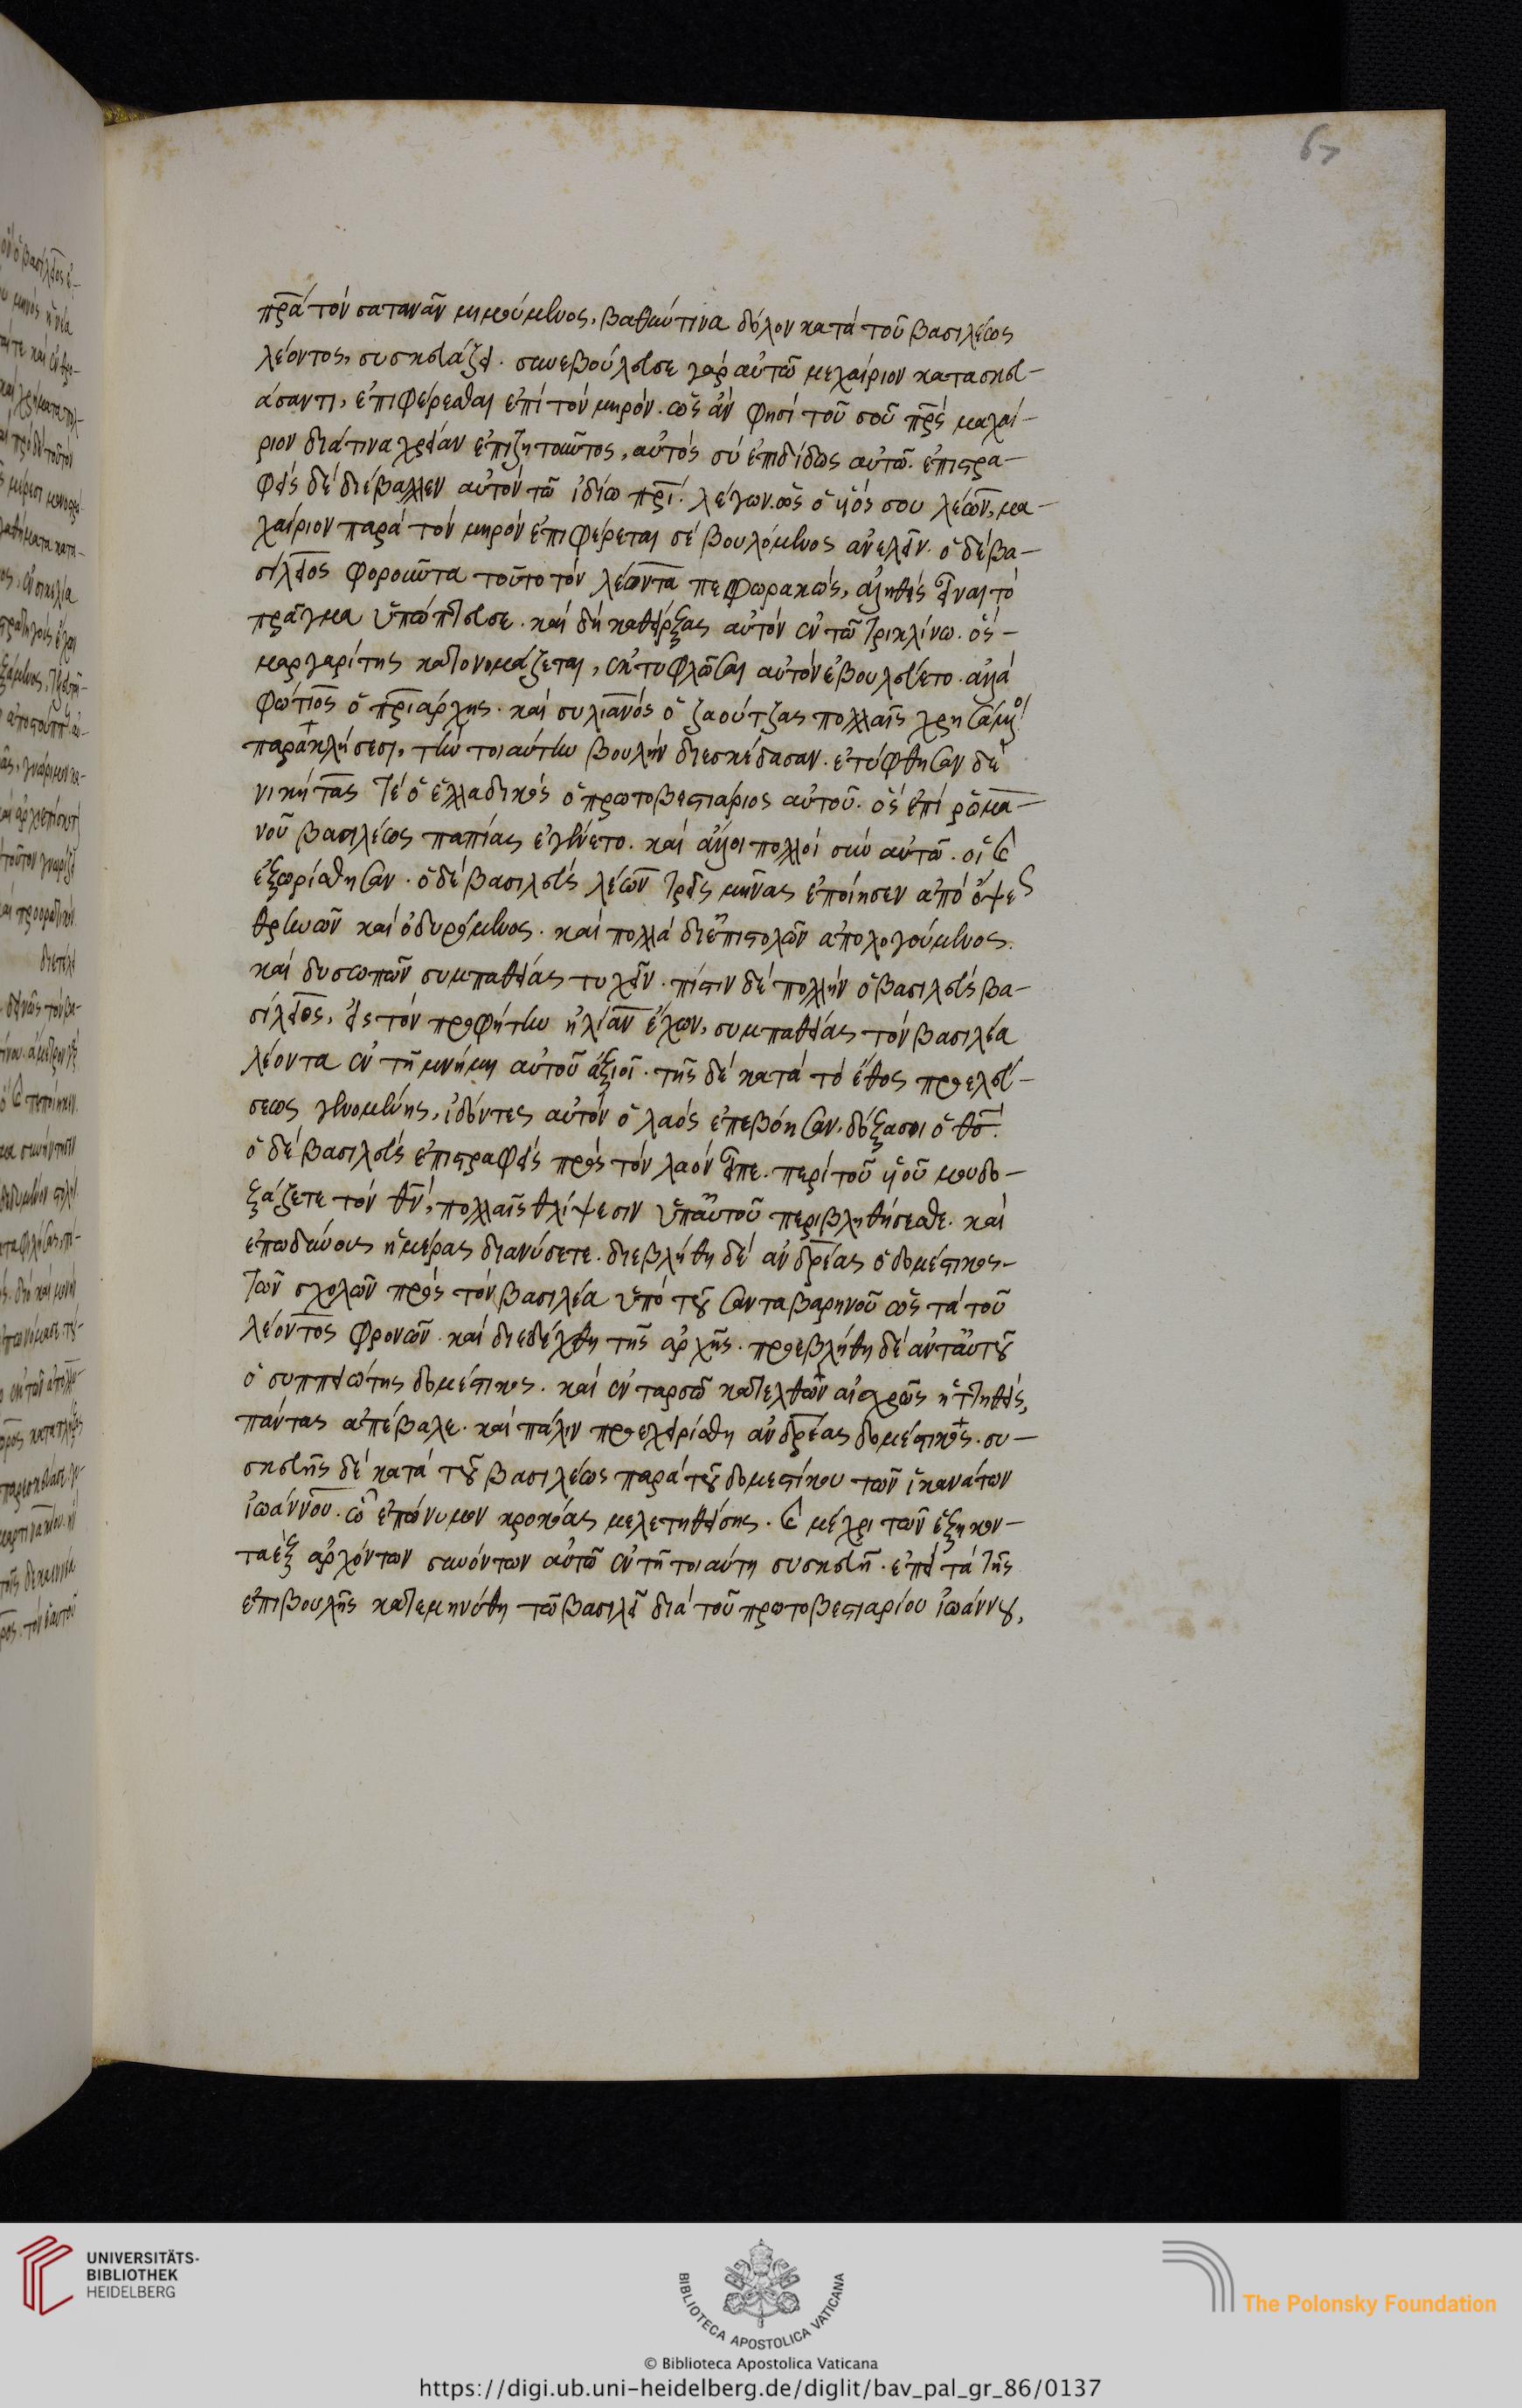 67
πρ̅α τὸν σατανᾶν μιμούμενος, βαθύν τινα δόλον κατὰ τοῦ βασιλέως
λέοντος, συσκευάζει. συνεβούλευσε γὰρ αὐτῶ μαχαίριον κατασκευ-
άσαντι, ἐπιφέρεσθαι ἐπὶ τὸν μηρόν. ὡς ἂν φησὶ τοῦ σοῦ πρ̅ς μαχαί-
ριον διά τινα χρείαν ἐπιζητοῦντος, αὐτὸς σὺ ἐπιδίδως αὐτῶ. ἐπιστρα-
φεὶς δὲ διέβαλλεν αὐτὸν τῶ ἰδίω πρ̅ι. λέγων. ὡς ὁ ὑός σου λέων, μα-
χαίριον παρὰ τὸν μηρὸν ἐπιφέρεται σὲ βουλόμενος ἀνελεῖν. ὁ δὲ βα-
σίλειος φοροῦντα τοῦτο τὸν λέοντα πεφωρακώς, ἀληθὲς εἶναι τὸ
πρᾶγμα ὑπώπτευσε. καὶ δὴ καθείρξας αὐτὸν ἐν τῶ τρικλίνω. ὃς
μαργαρίτης κατονομάζεται, ἐκτυφλῶσαι αὐτὸν ἐβουλεύετο. ἀλλὰ
φώτιος ὁ πρ̅ιάρχης. καὶ συλιανὸς ὁ ζαούτζας πολλαῖς χρησάμενοι
παρακλήσεσι, τὴν τοιαύτην βουλὴν διεσκέδασαν. ἐτύφθησαν δὲ
νικήτας τὲ ὁ ἑλλαδικὸς ὁ πρωτοβεστιάριος αὐτοῦ. ὃς ἐπὶ ῥωμα-
νοῦ βασιλέως παπίας ἐγένετο. καὶ ἄλλοι πολλοὶ σὺν αὐτῶ. οἳ καὶ
ἐξωρίσθησαν. ὁ δὲ βασιλεὺς λέων τρεῖς μῆνας ἐποίησεν ἀπὸ ὄψεως
θρηνῶν καὶ ὀδυρόμενος. καὶ πολλὰ δι' ἐπιστολῶν ἀπολογούμενος.
καὶ δυσωπῶν συμπαθείας τυχεῖν. πίστιν δὲ πολλὴν ὁ βασιλεὺς βα-
σίλειος, εἰς τὸν προφήτην ἠλίαν ἔχων, συμπαθείας τὸν βασιλέα
λέοντα ἐν τῆ μνήμη αὐτοῦ ἀξιοῖ. τῆς δὲ κατὰ τὸ ἔθος προελεύ-
σεως γενομένης, ἰδόντες αὐτὸν ὁ λαὸς ἐπεβόησαν, δόξα σοι ὁ θ̅ς.
ὁ δὲ βασιλεὺς ἐπιστραφεὶς πρὸς τὸν λαὸν εἶπε. περὶ τοῦ ὑοῦ μου δο-
ξάζετε τὸν θ̅ν, πολλαῖς θλίψεσιν ὑπ' αὐτοῦ περιβληθήσεσθε. καὶ
ἐπωδύνους ἡμέρας διανύσετε. διεβλήθη δὲ ἀνδρέας ὁ δομέστικος
τῶν σχολῶν πρὸς τὸν βασιλέα ὑπὸ τοῦ σανταβαρηνοῦ ὡς τὰ τοῦ
λέοντος φρονῶν. καὶ διεδέχθη τῆς ἀρχῆς. προεβλήθη δὲ ἀντ' αὐτοῦ
ὁ συππειώτης δομέστικος. καὶ ἐν ταρσῶ κατελθὼν αἰσχρῶς ἡττηθείς,
πάντας ἀπέβαλε. καὶ πάλιν προεχειρίσθη ἀνδρέας δομέστικος. συ-
σκευῆς δὲ κατὰ τοῦ βασιλέως παρὰ τοῦ δομεστίκου τῶν ἱκανάτων
ἰωάννου. ὧ ἐπώνυμον κροκόας μελετηθείσης. καὶ μέχρι τῶν ἑξήκον-
τα ἓξ ἀρχόντων συνόντων αὐτῶ ἐν τῆ τοιαύτη συσκευῆ. ἐπεὶ τὰ τῆς
ἐπιβουλῆς κατεμηνύθη τῶ βασιλεῖ διὰ τοῦ πρωτοβεστιαρίου ἰωάννου,
UNIVERSITÄTS-
BIBLIOTHEK
HEIDELBERG
BIBLIOTECA APOSTOLICA VATICANA
The Polonsky Foundation
© Biblioteca Apostolica Vaticana
https://digi.ub.uni-heidelberg.de/diglit/bav_pal_gr_86/0137